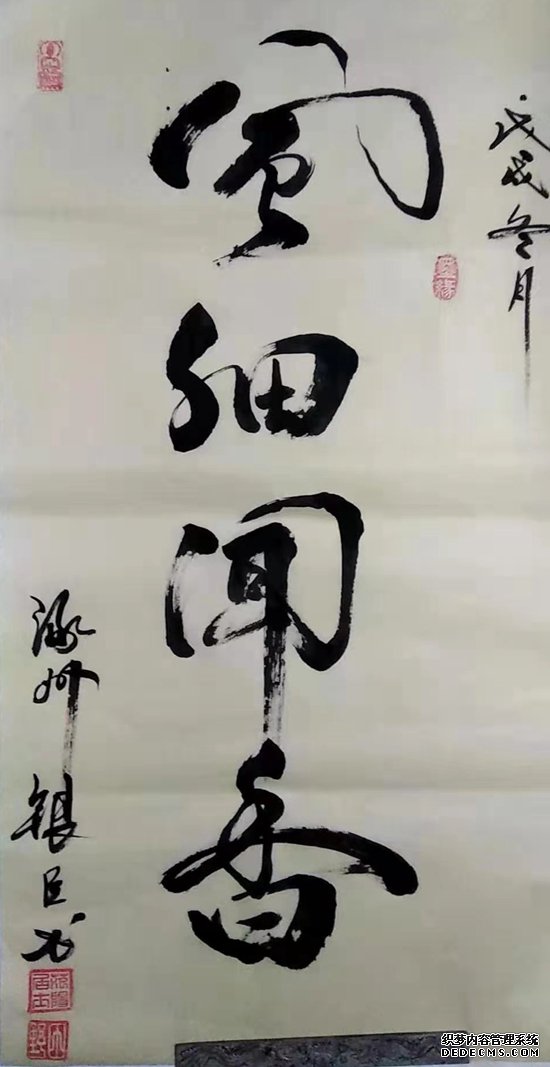 戊戌冬月
風细闻香
涿州
银臣书
织梦内容管理系统
DEDECMS.COM